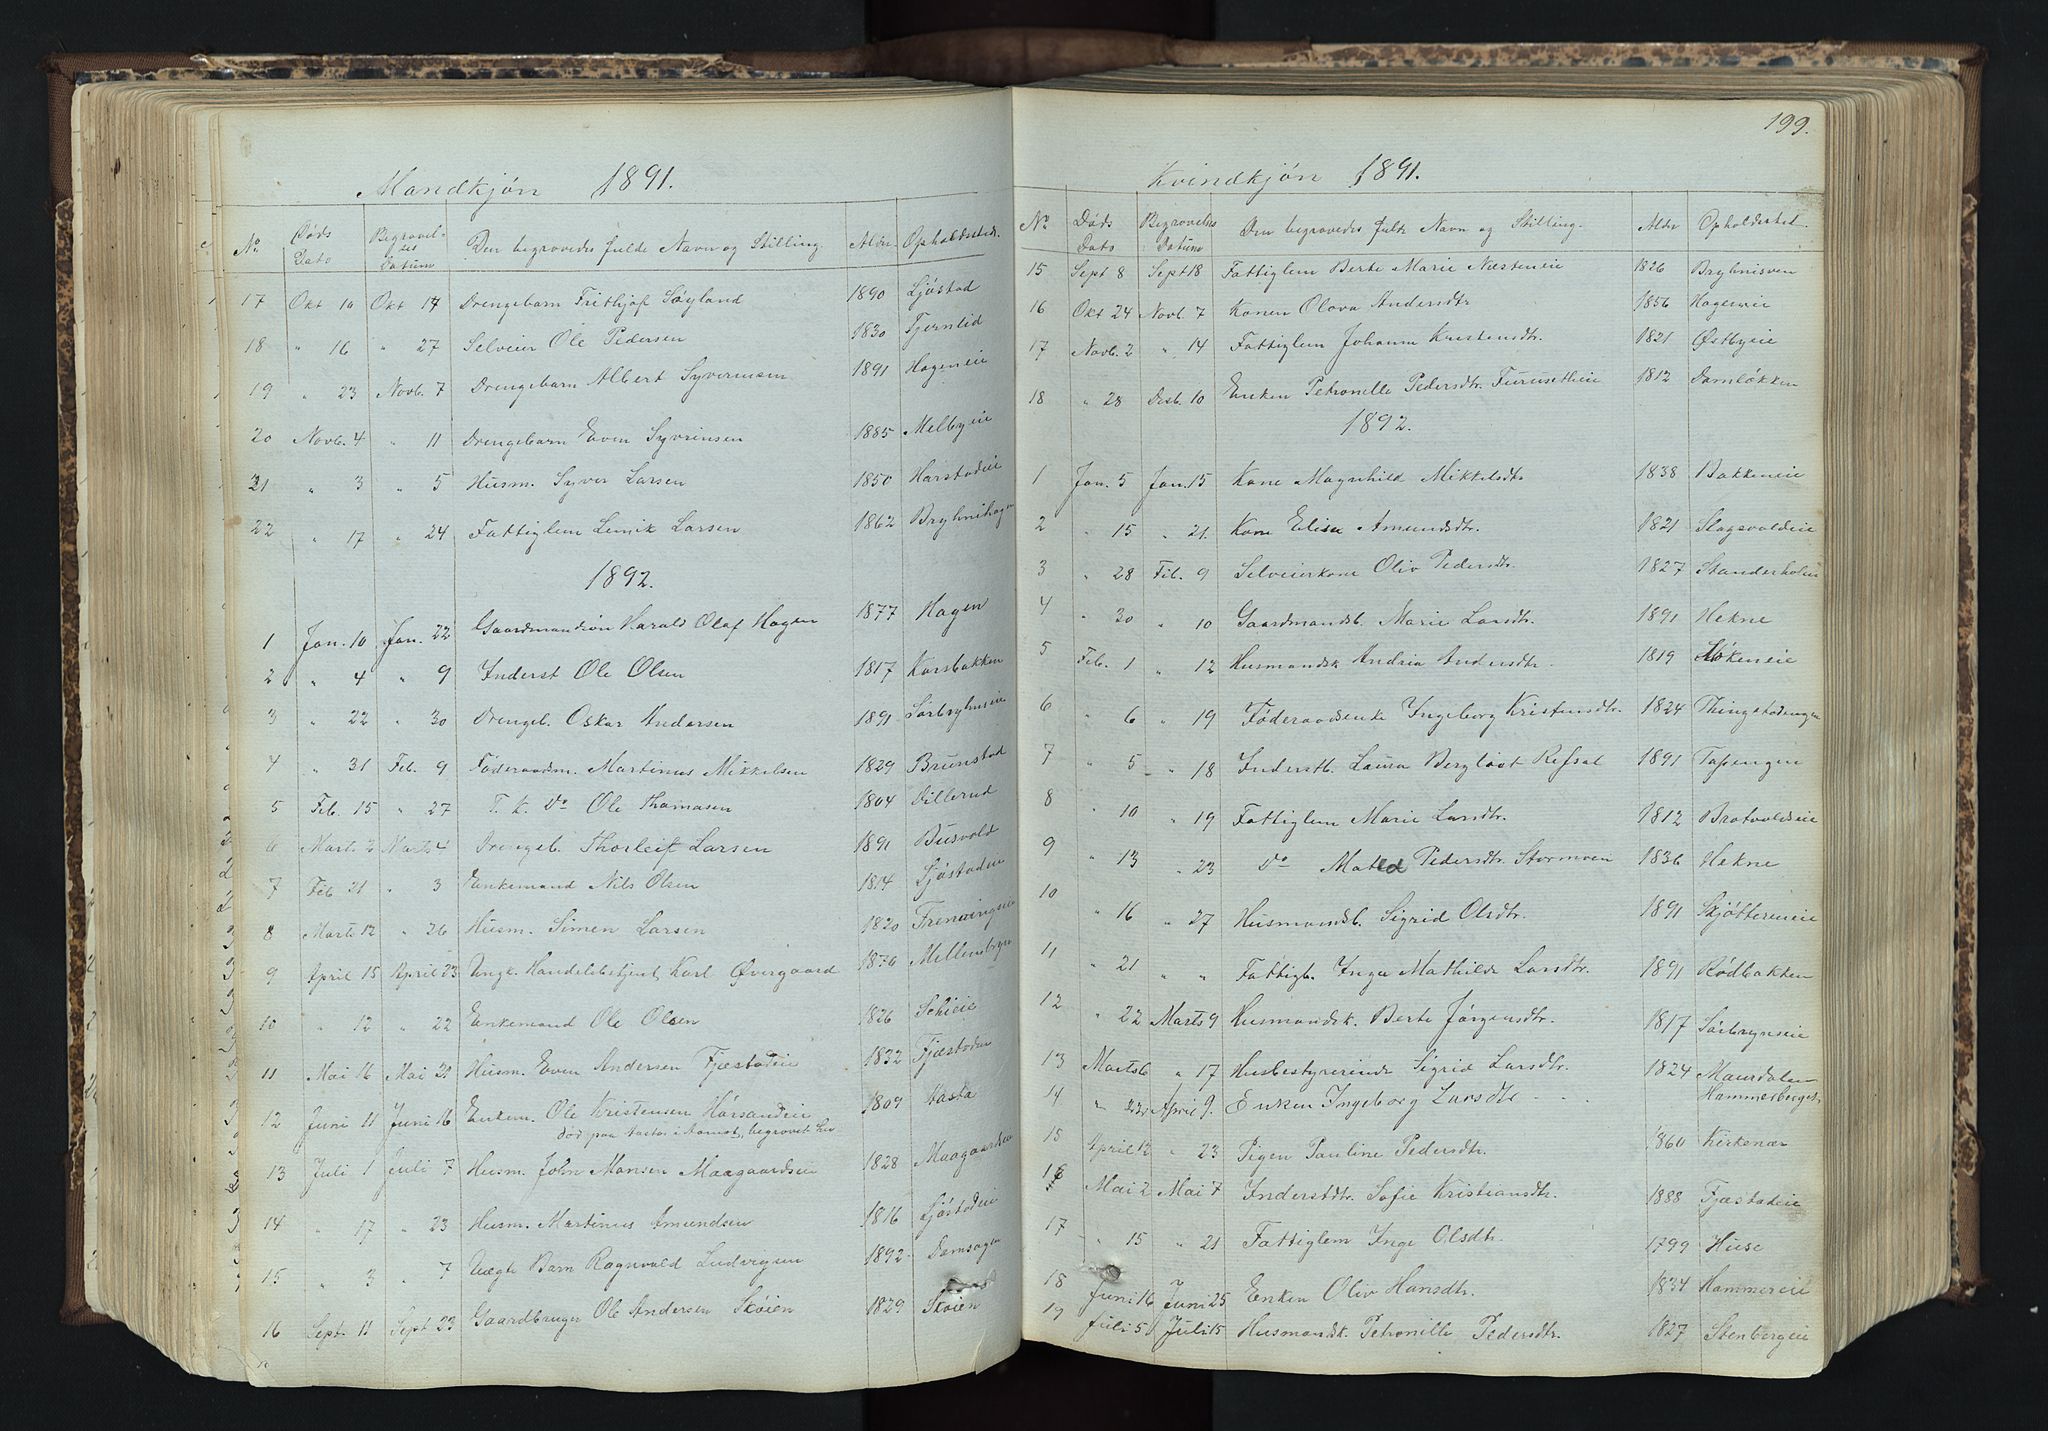 Mandkjøn 1891.
No Døds Dato Begravelses Datum Den begravedes fulde Navn og Stilling. Alder Opholdssted.
17 Okt 10 Okt 14 Drengebarn Frithjof Søyland 1890 Ljøstad
18 " 16 " 27 Selveier Ole Pedersen 1830 Tjernlid
19 " 23 Novb. 7 Drengebarn Albert Syverinsen 1891 Hageneie
20 Novb. 4 " 11 Drengebarn Even Syvrinsen 1885 Melbyeie
21 " 3 " 5 Husm. Syver Larsen 1850 Harstadeie
22 " 17 " 24 Fattiglem Larsen 1862 Bryhnihagen
1892.
1 Jan. 10 Jan. 22 Gaardmandsøn Harald Olaf Hagen 1877 Hagen
2 " 4 " 9 Inderst Ole Olsen 1817 Korsbakken
3 " 22 " 30 Drengeb. Oskar Andersen 1891 Sørbryhneie
4 " 31 Feb. 9 Føderaadm. Martinus Mikkelsen 1829 Brunstad
5 Feb. 15 " 27 T. K. Do Ole Thomasen 1804 Dillerud
6 Mart. 2 Marts 4 Drengeb. Thorleif Larsen 1891 Busvold
7 Feb 21 " 3 Enkemand Nils Olsen 1814 Ljøstadeie
8 Marts 12 " 26 Husm. Simen Larsen 1820
9 April 15 April 23 Ungk. Handelsbetjent Karl Øvergaard 1876
10 " 12 " 22 Enkemand Ole Olsen 1826
11 Mai 16 Mai 21 Husm. Even Andersen Fjæstadeie 1832 Fjæstadeie
12 Juni 11 Juni 16 Enkem. Ole Kristensen Hørsandeie 1809 Aasta
død paa Aasta i Aamot, begravet her
13 Juli 1 Juli 7 Husm. John Hansen Maagaardseie 1828 Maagaardseie
14 " 17 " 23 Husm. Martinus Amundsen 1816 Ljøstadeie
15 " 3 " 7 Uægte Barn Ragnvald Ludvigsen 1892 Damsagen
16 Sept. 11 Sept 23 Gaardbruger Ole Andersen Skøien 1829 Skøien
199.
Kvindkjøn 1891.
No Døds Dato Begravelses Datum Den begravedes fulde Navn og Stilling. Alder Opholdssted.
15 Sept 8 Sept 18 Fattiglem Berte Marie Næsteneie 1826 Bryhnisven
16 Okt 24 Novb. 7 Konen Olava Andersdtr 1856 Hageneie
17 Novb. 2 " 14 Fattiglem Johanne Kristensdtr. 1821 Østbyeie
18 " 28 Desb. 10 Enken Petronelle Pedersdtr. Furusetheie 1812 Damløkken
1892.
1 Jan. 5 Jan. 15 Kone Magnhild Mikkelsdtr 1838 Bakkeneie
2 " 15 " 21. Kone Elise Amundsdtr. 1821 Slagsvoldeie
3 " 28 Feb. 9 Selveierkone Oliv Pedersdtr. 1827 Standerholen
4 " 30 " 10 Gaardmandsb. Marie Larsdtr. 1891 Hekne
5 Feb. 1 " 12 Husmandsk Andria Andersdtr. 1819
6 " 6 " 19 Føderaadsenke Ingeborg Kristensdtr. 1824 Thingstadengen
7 " 5 " 18 Inderstb. Laura Bergliot Refsal 1891 Tapengen
8 " 10 " 19 Fattiglem Marie Larsdtr. 1812 Brotvoldseie
9 " 13 " 23 Do Pedersdtr. Stormoen 1836 Hekne
10 " 16 " 27 Husmandsb. Sigrid Olsdtr. 1891 Skjøttereneie
11 " 21 " " Fattigb. Inga Mathilde Larsdtr. 1891 Rødbakken
12 " 22 Marts 9 Husmandsk. Berte Jørgensdtr. 1817 Sørbryneie
13 Marts 6 " 17 Husbestyrerinde Sigrid Larsdtr. 1824 Maurdalen
14 " 22 April 9. Enken Ingeborg Larsdtr Hammerberget
15 April 12 " 23 Pigen Pauline Pedersdtr. 1860 Kirkenær
16 Mai 2 Mai 7 Inderstdtr. Sofie Kristiansdtr. 1888 Fjæstadeie
17 " 15 " 21 Fattiglem Inge Olsdtr. 1799 Huse
18 Juni 16 Juni 25 Enken Oliv Hansdtr. 1834 Hammereie
19 Juli 5 Juli 15 Husmandsk. Petronille Pedersdtr. 1827 Stenbergeie